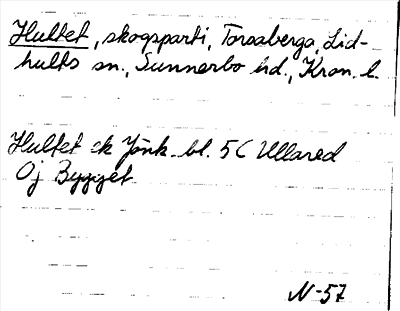 Hultet, skogsparti, Torsaberga, Lid-
hults sn., Sunnerbo hd., Kron. l.
Hultet ek Jönk. bl. 5C Ullared
Oj Bygget
N-57